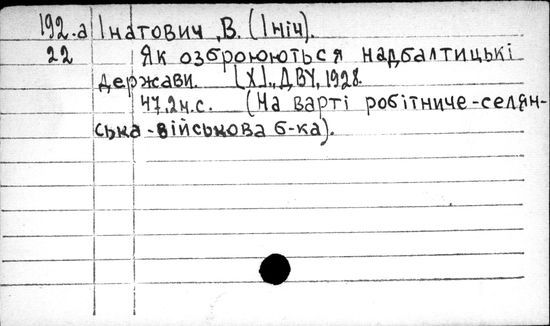 192.а Інатович, В. (Ініч).
22 Як озброюються надбалтицькі
держави. [Х]., ДВУ, 1928.
47,2н.с. (На варті робітниче-селян-
ська-військова б-ка).